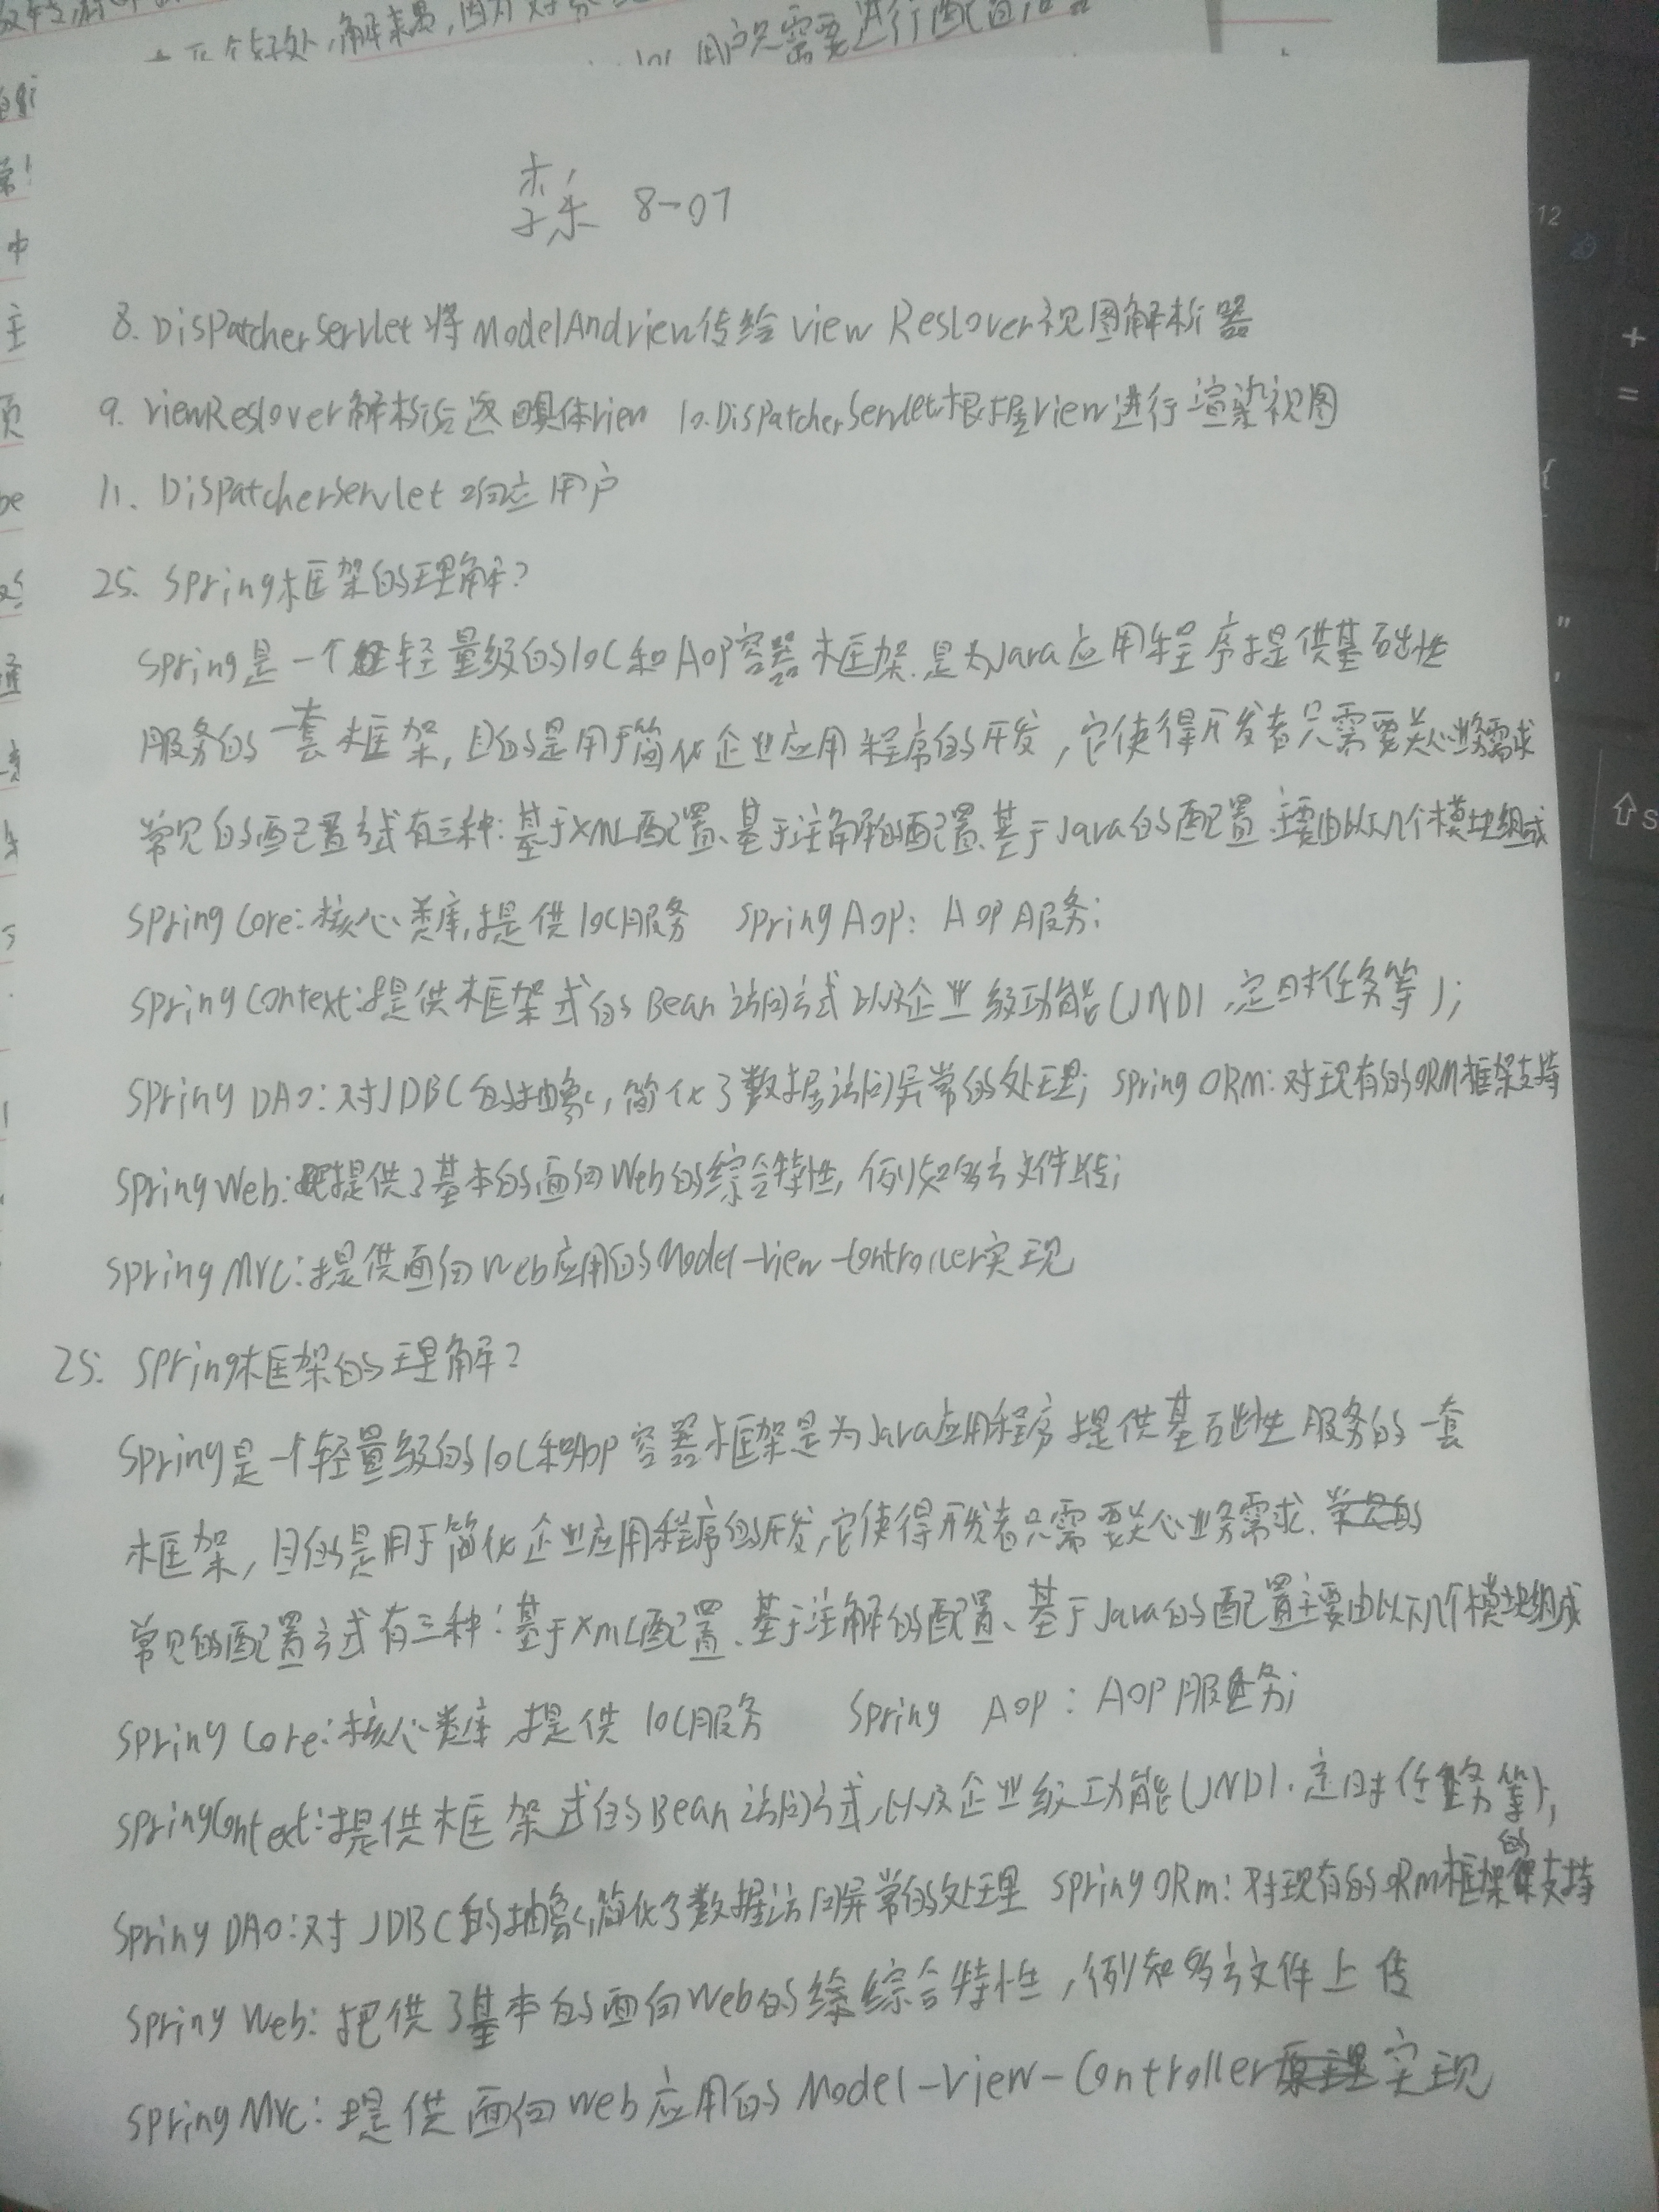 个好处,解耦,因为对象
用户只需要进行配置
8-07
8. DispatcherServlet将ModelAndview传给view Reslover视图解析器
9. viewReslover解析后返回具体view 10.DispatcherServlet根据view进行渲染视图
11. DispatcherServlet响应用户
25. Spring框架的理解?
Spring是一个轻量级的IOC和AOP容器框架.是为Java应用程序提供基础性
服务的一套框架,目的是用于简化企业应用程序的开发,它使得开发者只需要关心业务需求
常见的配置方式有三种:基于XML配置、基于注解的配置、基于Java的配置.主要由以下几个模块组成
Spring Core:核心类库,提供IOC服务 Spring AOP: AOP服务;
Spring Context:提供框架式的Bean访问方式以及企业级功能(JNDI,定时任务等);
Spring DAO:对JDBC的抽象,简化了数据访问异常的处理; Spring ORM:对现有的ORM框架支持
Spring Web:提供了基本的面向Web的综合特性,例如多方文件上传;
Spring MVC:提供面向Web应用的Model-View-Controller实现
25. Spring框架的理解?
Spring是一个轻量级的IOC和AOP容器框架是为Java应用程序提供基础性服务的一套
框架,目的是用于简化企业应用程序的开发,它使得开发者只需要关心业务需求.常见的
常见的配置方式有三种:基于XML配置、基于注解的配置、基于Java的配置主要由以下几个模块组成
Spring Core:核心类库,提供IOC服务 Spring AOP: AOP服务;
Spring Context:提供框架式的Bean访问方式,以及企业级功能(JNDI.定时任务等);
Spring DAO:对JDBC的抽象,简化了数据访问异常的处理 Spring ORM:对现有的ORM框架的支持
Spring Web:提供了基本的面向Web的综合特性,例如多方文件上传
Spring MVC:提供面向web应用的Model-View-Controller原理实现